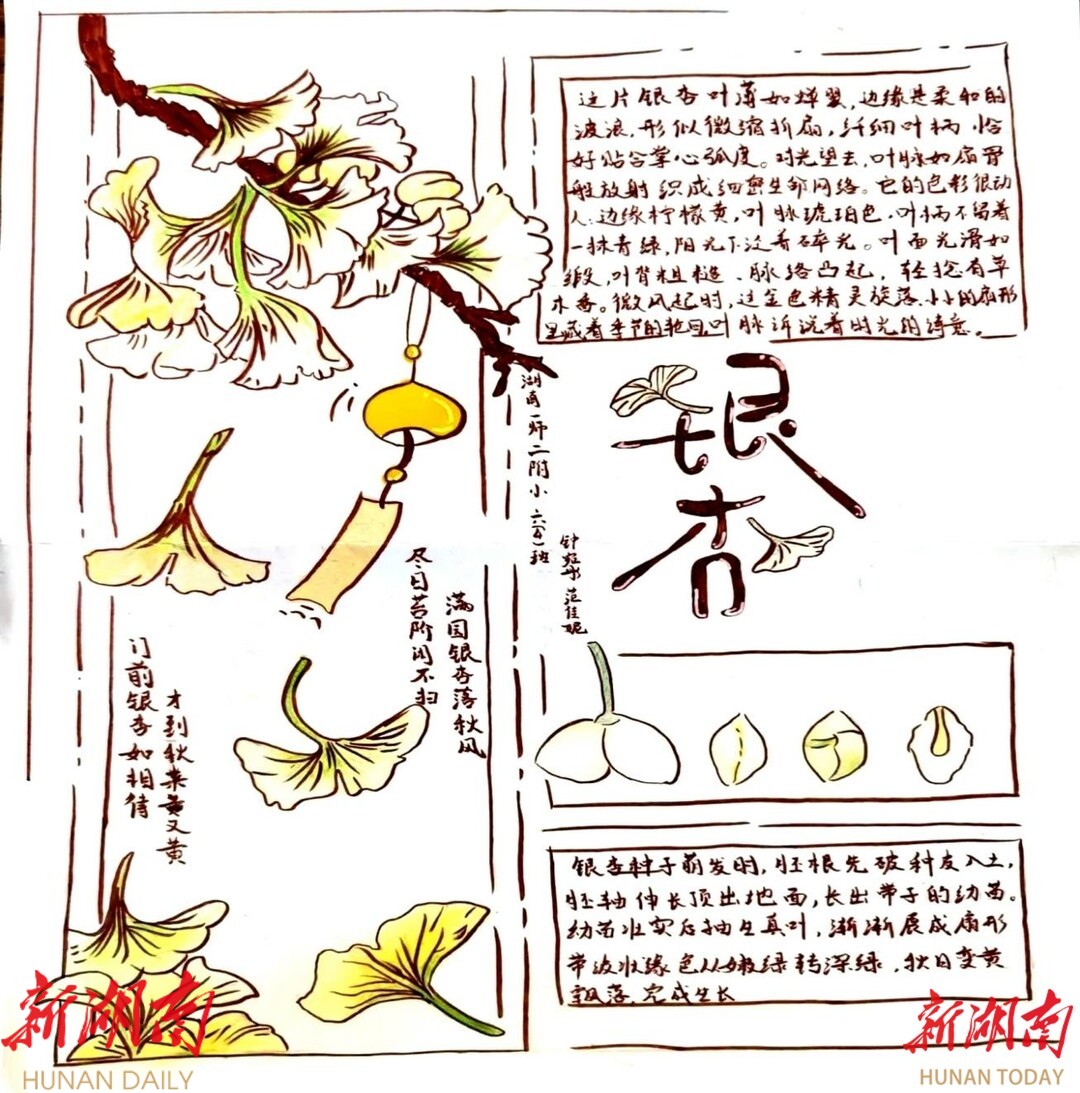 这片银杏叶薄如蝉翼,边缘是柔和的
波浪,形似微缩折扇,纤细叶柄恰
好贴合掌心弧度。对光望去,叶脉如扇骨
般放射织成细密生命网络。它的色彩很动
人:边缘柠檬黄,叶脉琥珀色,叶柄不留着
一抹青绿,阳光下泛着碎光。叶面光滑如
缎,叶背粗糙、脉络凸起,轻捻有草
木香。微风起时,这金色精灵旋落,小小的扇形
里藏着季节的轮回,叶脉诉说着时光的诗意。
银杏
湖南一师二附小
班
范佳妮
满园银杏落秋风
尽日苔阶闲不扫
门前银杏如相待
才到秋来黄又黄
银杏种子萌发时,胚根先破种皮入土,
胚轴伸长顶出地面,长出带子的幼苗。
幼苗壮实后抽生真叶,渐渐展成扇形
带波状缘色从嫩绿转深绿,秋日变黄
飘落,完成生长
新湖南
HUNAN DAILY
新湖南
HUNAN TODAY